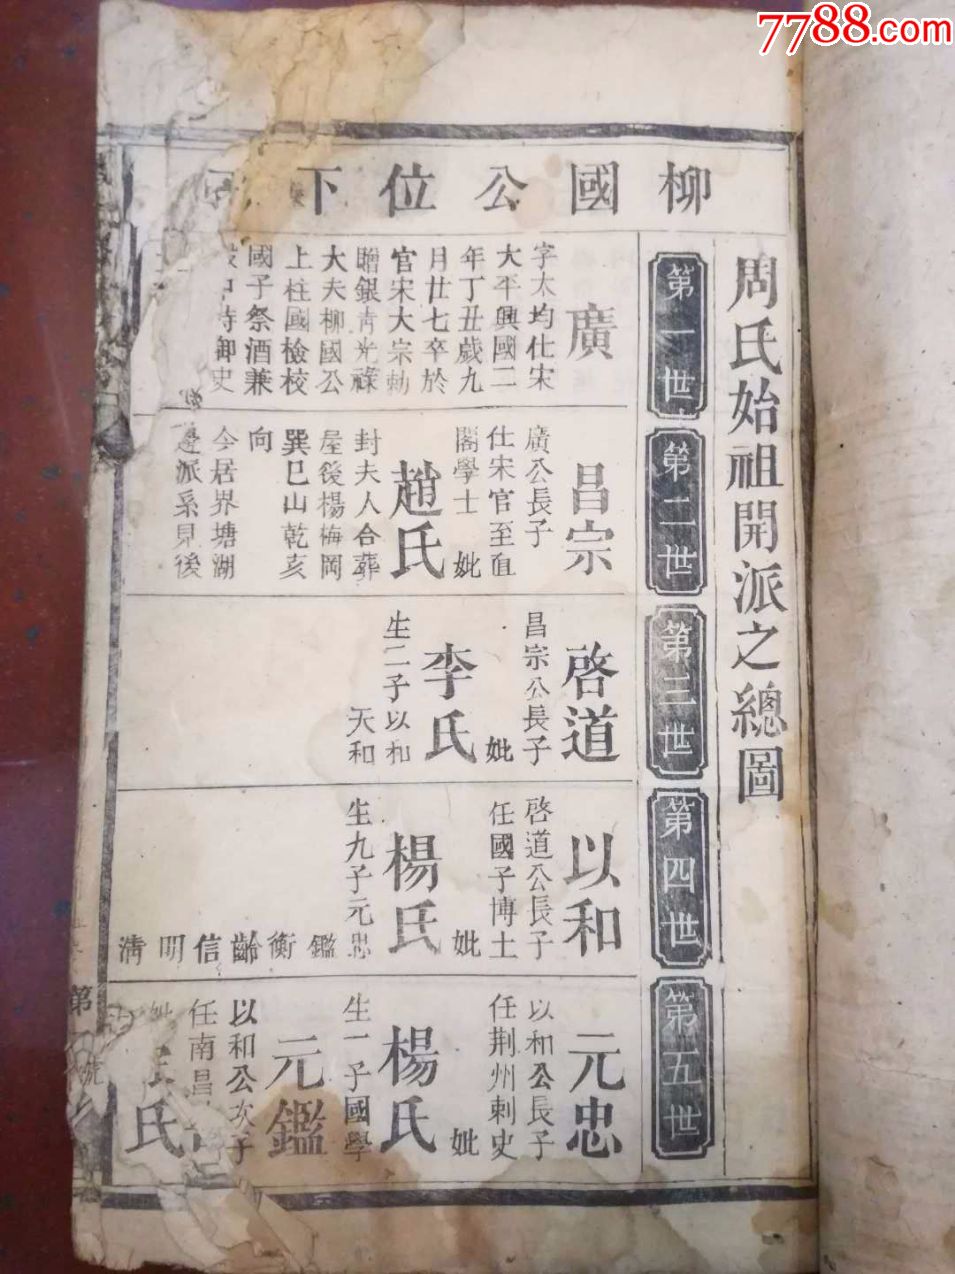 7788.com
柳國公位下
周氏始祖開派之總圖
第一世
廣
字太均仕宋
大平興國二
年丁丑歲九
月廿七卒於
官宋大宗勅
贈銀青光祿
大夫柳國公
上柱國檢校
國子祭酒兼
中侍御史
第二世
昌宗
廣公長子
仕宋官至直
閣學士 妣
趙氏
封夫人合葬
屋後楊梅岡
巽巳山乾亥
向
今居界塘湖
邊派系見後
第三世
啓道
昌宗公長子
妣
李氏
生二子以和
天和
第四世
以和
啓道公長子
任國子博士
妣
楊氏
生九子元忠
鑑衡齡信明清
第五世
元忠
以和公長子
任荆州刺史
妣
楊氏
生一子國學
元鑑
以和公次子
任南昌
氏
第 號